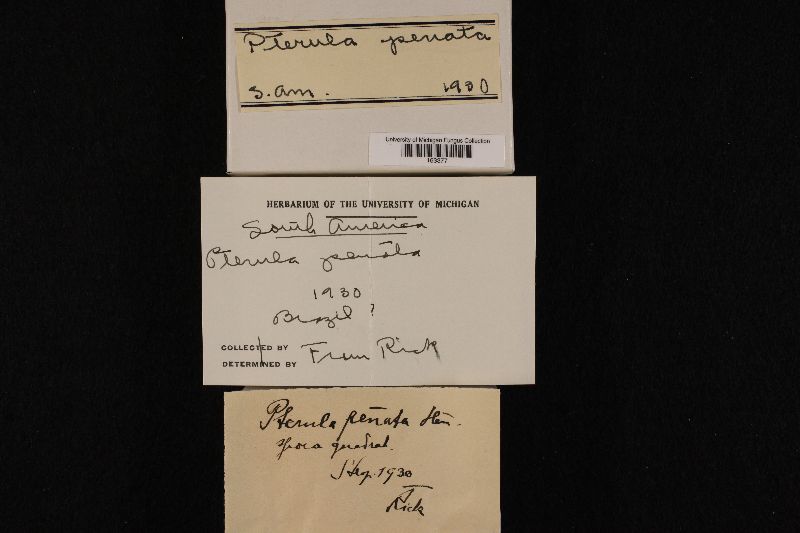 Pterula penata
S. Am. 1930
University of Michigan Fungus Collection
HERBARIUM OF THE UNIVERSITY OF MICHIGAN
South America
Pterula penāta
1930
Brazil ?
COLLECTED BY
DETERMINED BY
From Rick
Pterula peñata Hen.
quadrat.
1930
Rick